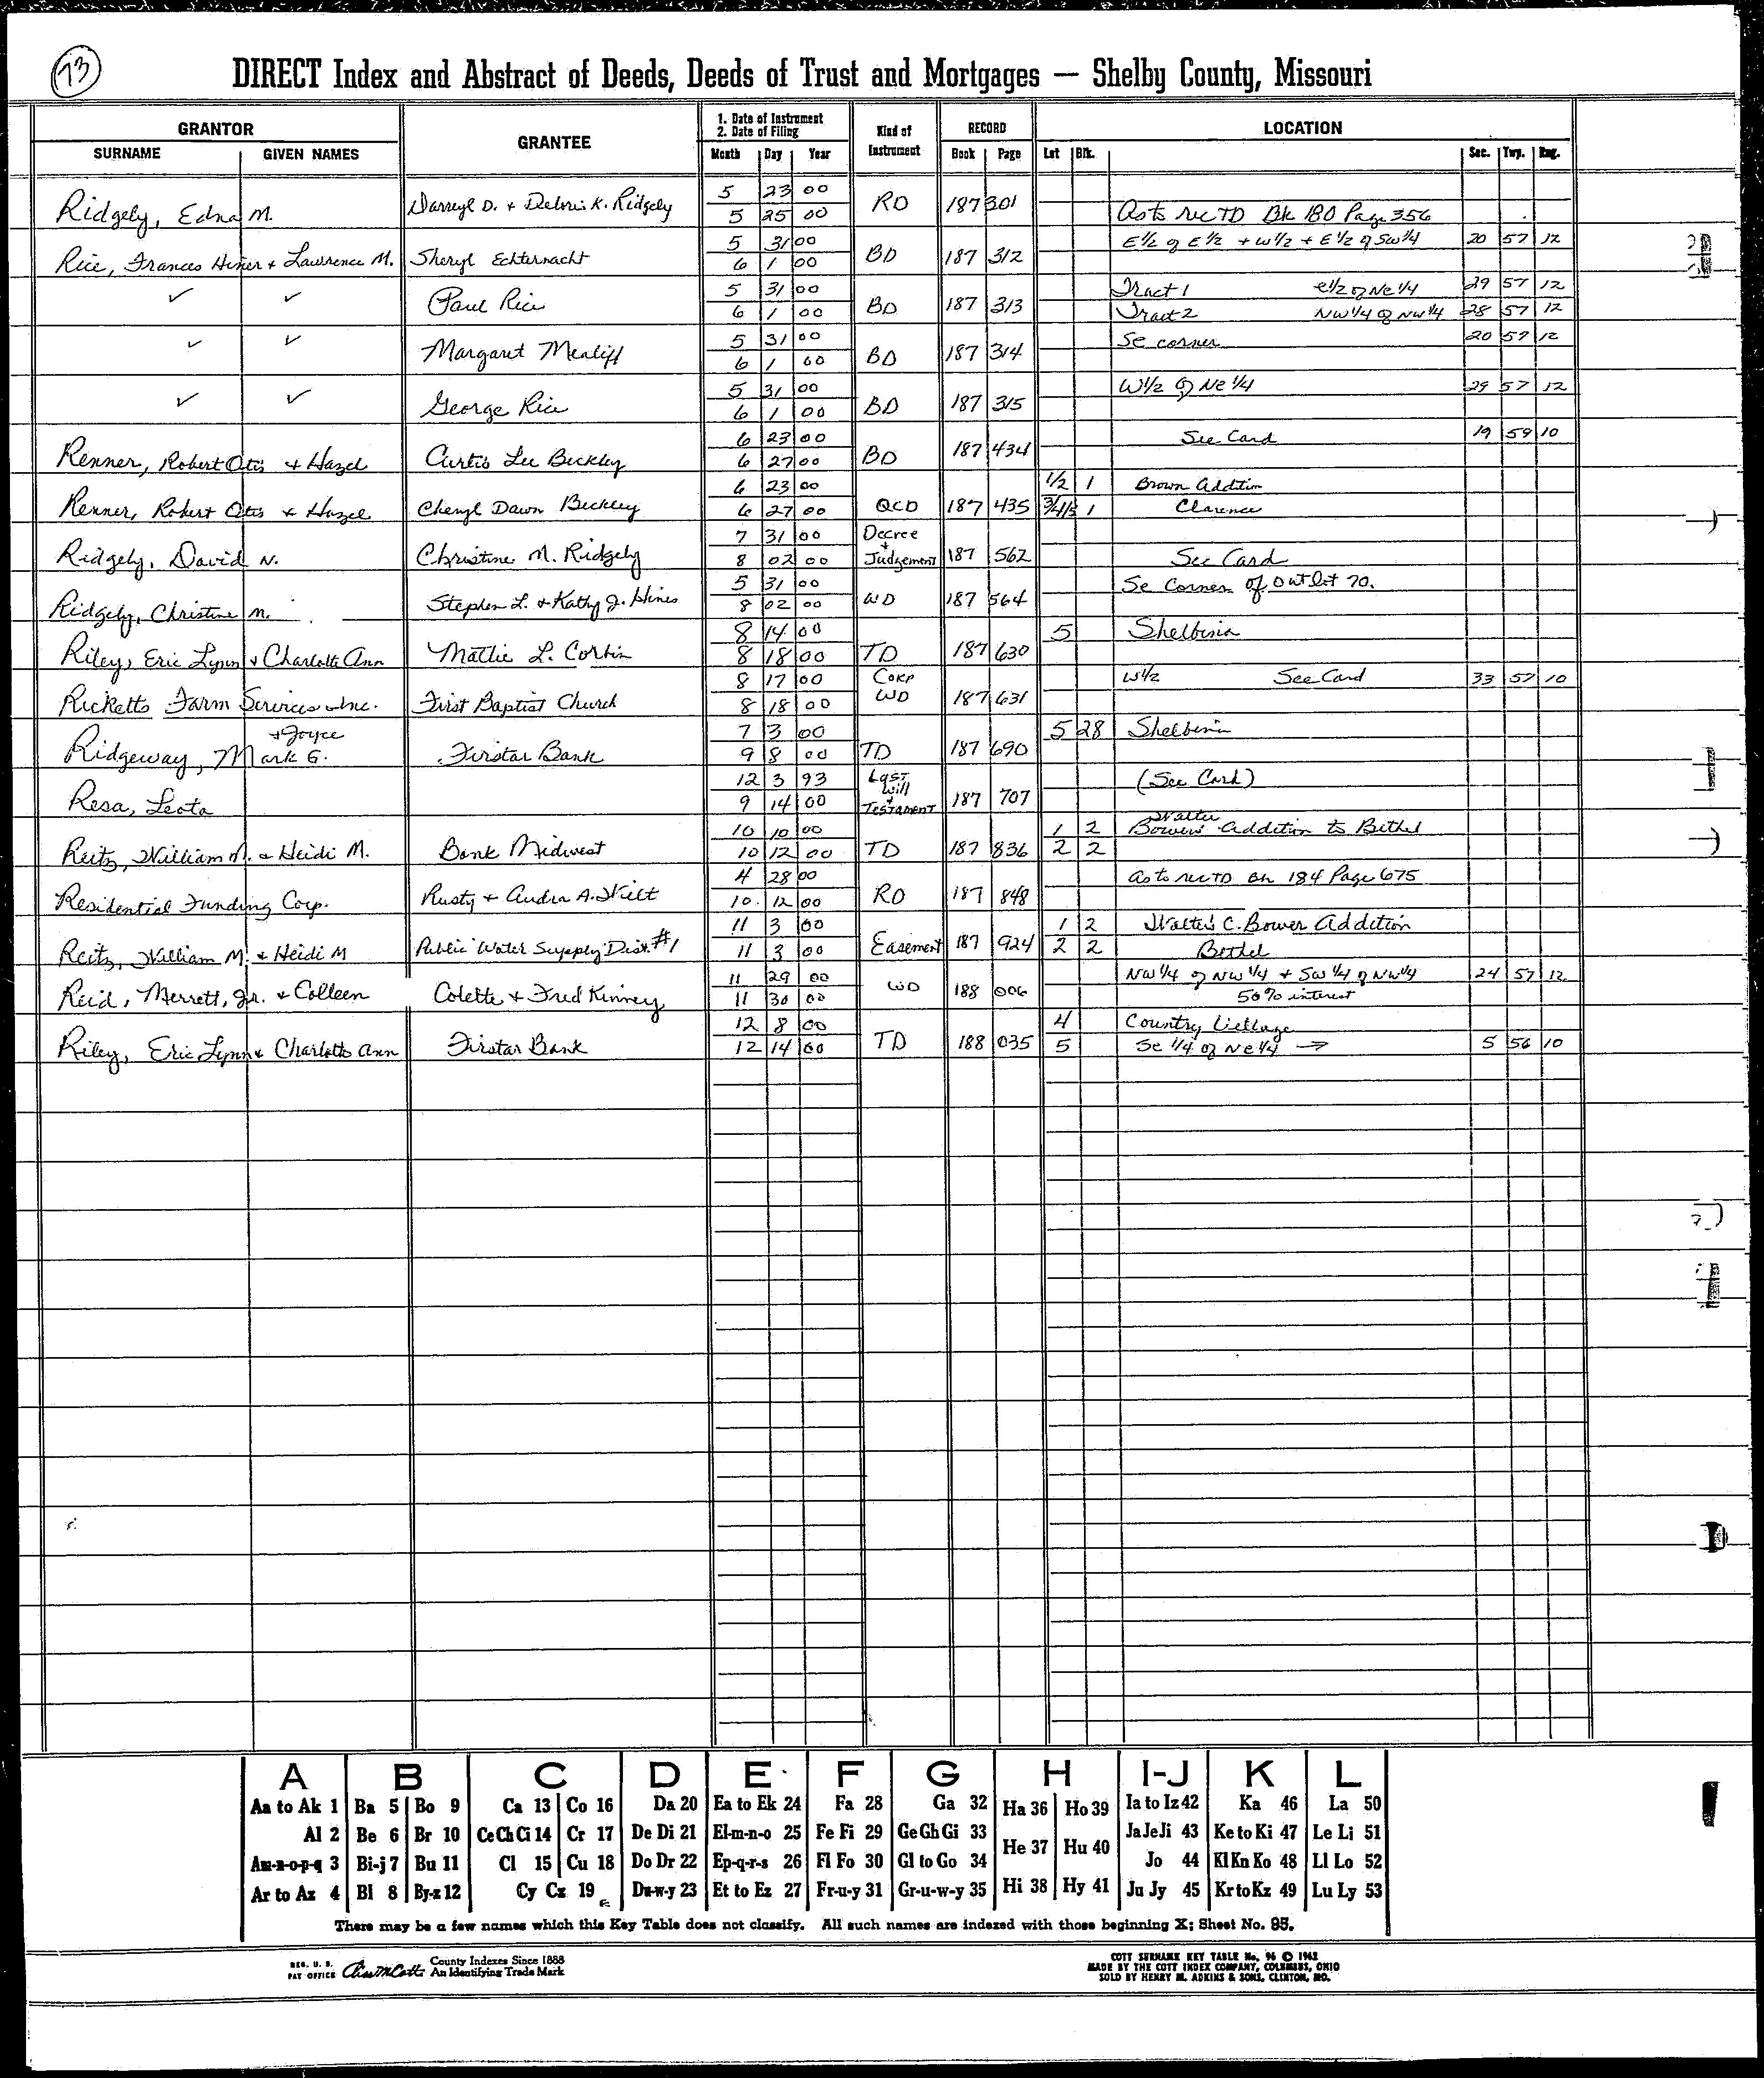 73
DIRECT Index and Abstract of Deeds, Deeds of Trust and Mortgages — Shelby County, Missouri
GRANTOR GRANTEE 1. Date of Instrument 2. Date of Filing Kind of Instrument RECORD LOCATION
SURNAME GIVEN NAMES Month Day Year Book Page Lot Blk. Sec. Twp. Rng.
5 23 00
Ridgely, Edna M. Darreyl D. + Deloris K. Ridgely 5 25 00 RD 187 301 As to rec TD Bk 180 Page 356
5 31 00 E 1/2 of E 1/2 + W 1/2 + E 1/2 of SW 1/4 20 57 12
Rice, Frances Hiner + Lawrence M. Sheryl Echternacht 6 1 00 BD 187 312
5 31 00 Tract 1 e 1/2 of Ne 1/4 29 57 12
✓ ✓ Paul Rice 6 1 00 BD 187 313 Tract 2 NW 1/4 of NW 1/4 28 57 12
5 31 00 Se corner 20 57 12
✓ ✓ Margaret Menliff 6 1 00 BD 187 314
5 31 00 W 1/2 of Ne 1/4 29 57 12
✓ ✓ George Rice 6 1 00 BD 187 315
6 23 00 See Card 19 59 10
Renner, Robert Otis + Hazel Curtis Lee Beckley 6 27 00 BD 187 434
6 23 00 1/2 1 Brown Addition
Renner, Robert Otis + Hazel Cheryl Dawn Beckley 6 27 00 QCD 187 435 1 Clarence
7 31 00 Decree +
Ridgely, David N. Christine M. Ridgely 8 02 00 Judgement 187 562 See Card
5 31 00 Se Corner of outlot 70.
Ridgely, Christine M. Stephen L. + Kathy J. Hines 8 02 00 WD 187 564
8 14 00 5 Shelbina
Riley, Eric Lynn + Charlotte Ann Mattie L. Corbin 8 18 00 TD 187 630
8 17 00 Corp W 1/2 See Card 33 57 10
Ricketts Farm Services Inc. First Baptist Church 8 18 00 WD 187 631
+ Joyce 7 3 00 5 28 Shelbina
Ridgeway, Mark G. Firstar Bank 9 8 00 TD 187 690
12 3 93 Last Will + (See Card)
Resa, Leota 9 14 00 Testament 187 707
10 10 00 1 2 Walter Bowers Addition to Bethel
Reitz, William M. + Heidi M. Bank Midwest 10 12 00 TD 187 836 2 2
4 28 00 As to rec TD Bk 184 Page 675
Residential Funding Corp. Rusty + Audra A. Wilt 10 12 00 RD 187 848
11 3 00 1 2 Walter C. Bower Addition
Reitz, William M. + Heidi M Public Water Supply Dist. #1 11 3 00 Easement 187 924 2 2 Bethel
11 29 00 NW 1/4 of NW 1/4 + SW 1/4 of NW 1/4 24 57 12
Reid, Merrett, Jr. + Colleen Colette + Fred Kinney 11 30 00 WD 188 006 50% interest
12 8 00 4 Country Village
Riley, Eric Lynn + Charlotte Ann Firstar Bank 12 14 00 TD 188 035 5 Se 1/4 of Ne 1/4 → 5 56 10
A B C D E F G H I-J K L
Aa to Ak 1 Ba 5 Bo 9 Ca 13 Co 16 Da 20 Ea to Ek 24 Fa 28 Ga 32 Ha 36 Ho 39 Ia to Iz 42 Ka 46 La 50
Al 2 Be 6 Br 10 Ce Ch Ci 14 Cr 17 De Di 21 El-m-n-o 25 Fe Fi 29 Ge Gh Gi 33 He 37 Hu 40 Ja Je Ji 43 Ke to Ki 47 Le Li 51
Am-n-o-p-q 3 Bi-j 7 Bu 11 Cl 15 Cu 18 Do Dr 22 Ep-q-r-s 26 Fl Fo 30 Gl to Go 34 Jo 44 Kl Kn Ko 48 Ll Lo 52
Ar to Az 4 Bl 8 By-z 12 Cy Cz 19 Du-w-y 23 Et to Ez 27 Fr-u-y 31 Gr-u-w-y 35 Hi 38 Hy 41 Ju Jy 45 Kr to Kz 49 Lu Ly 53
There may be a few names which this Key Table does not classify. All such names are indexed with those beginning X; Sheet No. 95.
REG. U. S. PAT OFFICE County Indexes Since 1888 An Identifying Trade Mark
COTT SURNAME KEY TABLE No. 96 © 1962
MADE BY THE COTT INDEX COMPANY, COLUMBUS, OHIO
SOLD BY HENRY M. ADKINS & SONS, CLINTON, MO.